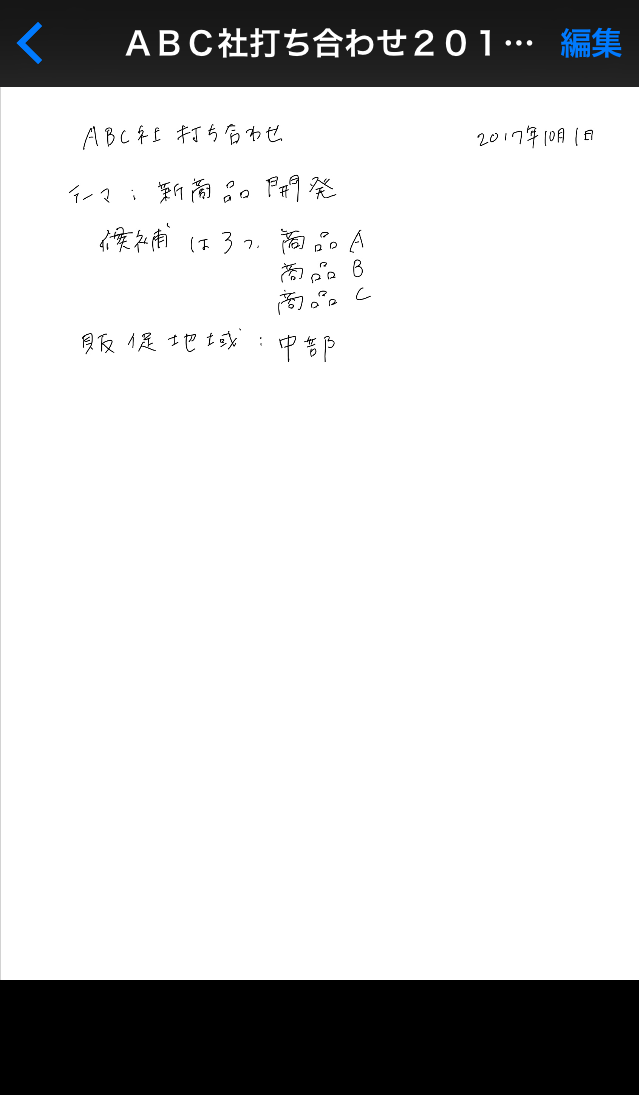 ABC社打ち合わせ201… 編集
ABC社 打ち合わせ 2017年10月1日
テーマ：新商品 開発
候補は3つ 商品A
商品B
商品C
販促地域：中部